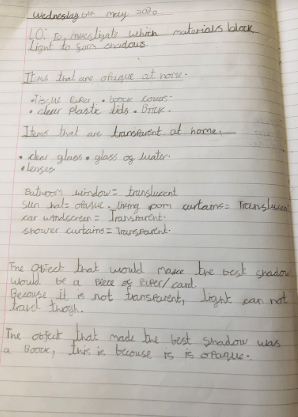 Wednesday 6th May 2020
LO: to investigate which materials block
light to form shadows
Items that are opaque at home.
• Tissue paper • book cover
• clear plastic lids • Brick.
Items that are transparent at home.
• clear glass • glass of water.
• lenses
Bathroom window = translucent
Sun hat = opaque • living room curtains = Translucent
car windscreen = Transparent.
shower curtains = Transparent.
The object that would make the best shadow
would be a piece of paper/card.
Because it is not transparent, light can not
travel though.
The object that made the best shadow was
a Book, this is because is is opaque.